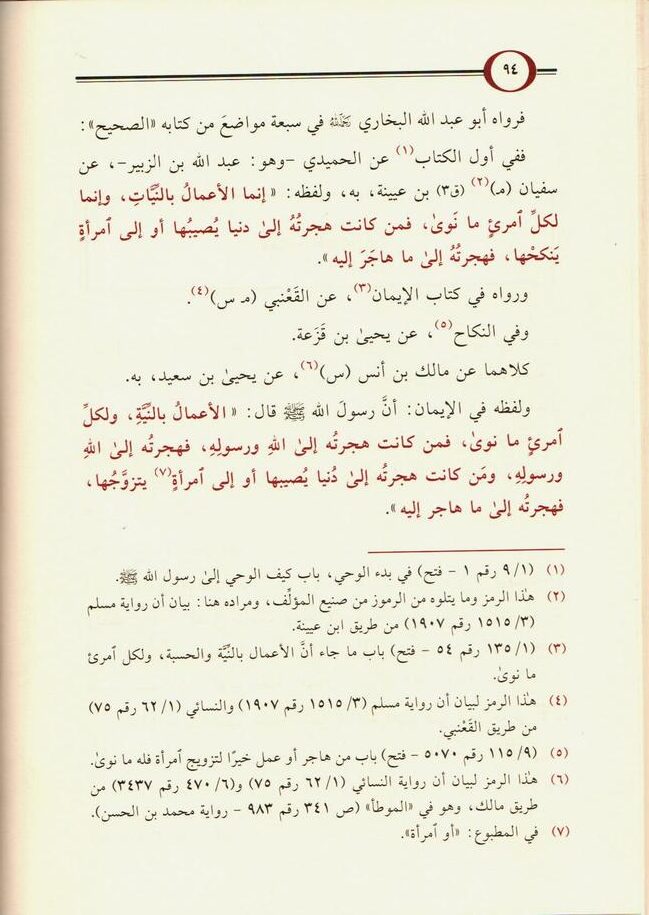 ٩٤
فرواه أبو عبد الله البخاري رحمه الله في سبعة مواضعَ من كتابه «الصحيح»:
ففي أول الكتاب(١) عن الحميدي -وهو: عبد الله بن الزبير-، عن
سفيان (م)(٢) (ق٣) بن عيينة، به، ولفظه: «إنما الأعمالُ بالنيَّاتِ، وإنما
لكلِّ ٱمرئٍ ما نَوىٰ، فمن كانت هجرتُهُ إلىٰ دنيا يُصيبُها أو إلى ٱمرأةٍ
يَنكحْها، فهجرتُهُ إلىٰ ما هاجَرَ إليه».
ورواه في كتاب الإيمان(٣)، عن القَعْنبي (م س)(٤).
وفي النكاح(٥)، عن يحيىٰ بن قَزَعة.
كلاهما عن مالك بن أنس (س)(٦)، عن يحيىٰ بن سعيد، به.
ولفظه في الإيمان: أنَّ رسولَ الله ﷺ قال: «الأعمالُ بالنيَّةِ، ولكلِّ
ٱمرئٍ ما نوىٰ، فمن كانت هجرتُه إلىٰ اللهِ ورسولِهِ، فهجرتُه إلىٰ اللهِ
ورسولِهِ، ومَن كانت هجرتُه إلىٰ دُنيا يُصيبها أو إلى ٱمرأةٍ(٧) يتزوَّجُها،
فهجرتُه إلىٰ ما هاجر إليه».
(١) (١/ ٩ رقم ١ - فتح) في بدء الوحي، باب كيف الوحي إلىٰ رسول الله ﷺ.
(٢) هٰذا الرمز وما يتلوه من الرموز من صنيع المؤلِّف، ومراده هنا: بيان أن رواية مسلم
(٣/ ١٥١٥ رقم ١٩٠٧) من طريق ابن عيينة.
(٣) (١/ ١٣٥ رقم ٥٤ - فتح) باب ما جاء أنَّ الأعمال بالنيَّة والحسبة، ولكل ٱمرئ
ما نوىٰ.
(٤) هٰذا الرمز لبيان أن رواية مسلم (٣/ ١٥١٥ رقم ١٩٠٧) والنسائي (١/ ٦٢ رقم ٧٥)
من طريق القَعْنبي.
(٥) (٩/ ١١٥ رقم ٥٠٧٠ - فتح) باب من هاجر أو عمل خيرًا لتزويج ٱمرأة فله ما نوىٰ.
(٦) هٰذا الرمز لبيان أن رواية النسائي (١/ ٦٢ رقم ٧٥) و(٦/ ٤٧٠ رقم ٣٤٣٧) من
طريق مالك، وهو في «الموطأ» (ص ٣٤١ رقم ٩٨٣ - رواية محمد بن الحسن).
(٧) في المطبوع: «أو ٱمرأة».